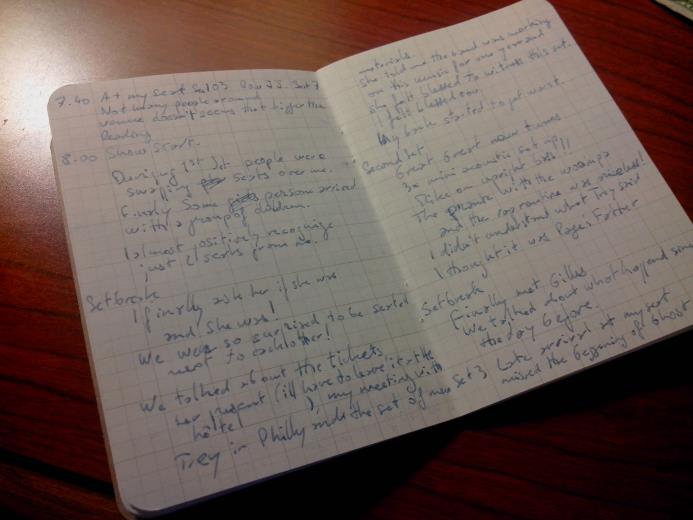 7.40 At my seat Sec 103 Row 23 Seat 7
Not many people around
venue doesn't seems that bigger than
Reading
8.00 Show start.
During 1st Set people were
swapping seats over me.
Finally some person arrived
with a group of children.
I almost positively recognize
just 2 seats from me.
Setbreak
I finally ask her if she was
and she was!
We were so surprized to be seated
next to eachother!
We talked about the tickets
her present (ill have to leave it at the
hotel), my meeting with
Trey in Philly and the set of new
materials.
She told me the band was working
on this music for one year and
she felt blessed to witness this set.
I felt blessed too.
My back started to get worst.
Second Set
Great Great new tunes
3x mini acoustic set up!!
Mike on upright bass!!
The with the woamps
and the rap routine was
I didn't understand what Trey said
I thought it was Page's Father
Setbreak
Finally met Gilles
We talked about what happend since
the day before.
Set 3, Late arrival at my seat
missed the beginning of Ghost